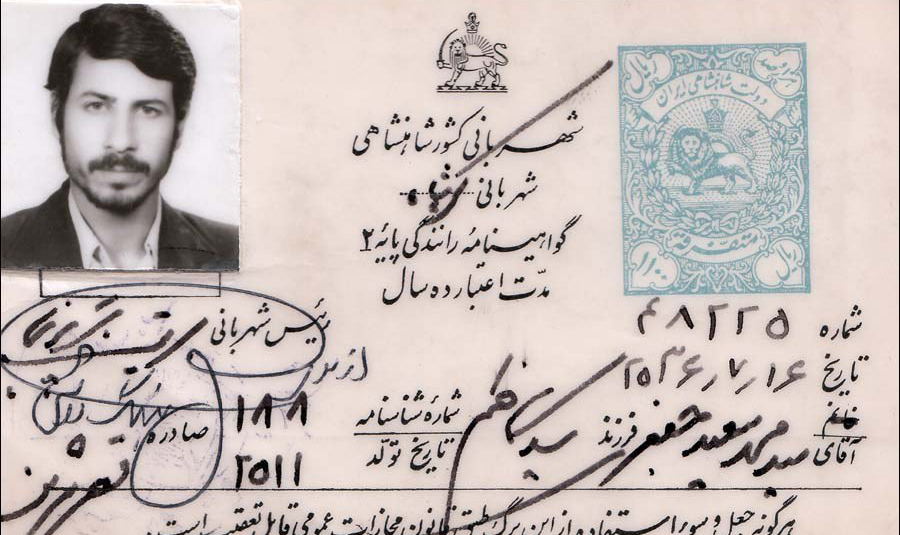 دولت شاهنشاهی ایران
متفرقه
ریال
۱۰۰
ریال
شهربانی کشور شاهنشاهی
شهربانی
گواهینامهٔ رانندگی پایهٔ ۲
مدّت اعتبار ده سال
شماره ۴۸۲۲۵
تاریخ ۲۵۳۶٫۷٫۱۶
خانم
آقای سید محمد سعید جعفری فرزند سید کاظم
شمارهٔ شناسنامه ۱۸۸ صادره
تاریخ تولّد ۲۵۱۱
رئیس شهربانی
هرگونه جعل و سوء استفاده از این برگ طبق قانون مجازات عمومی قابل تعقیب است.